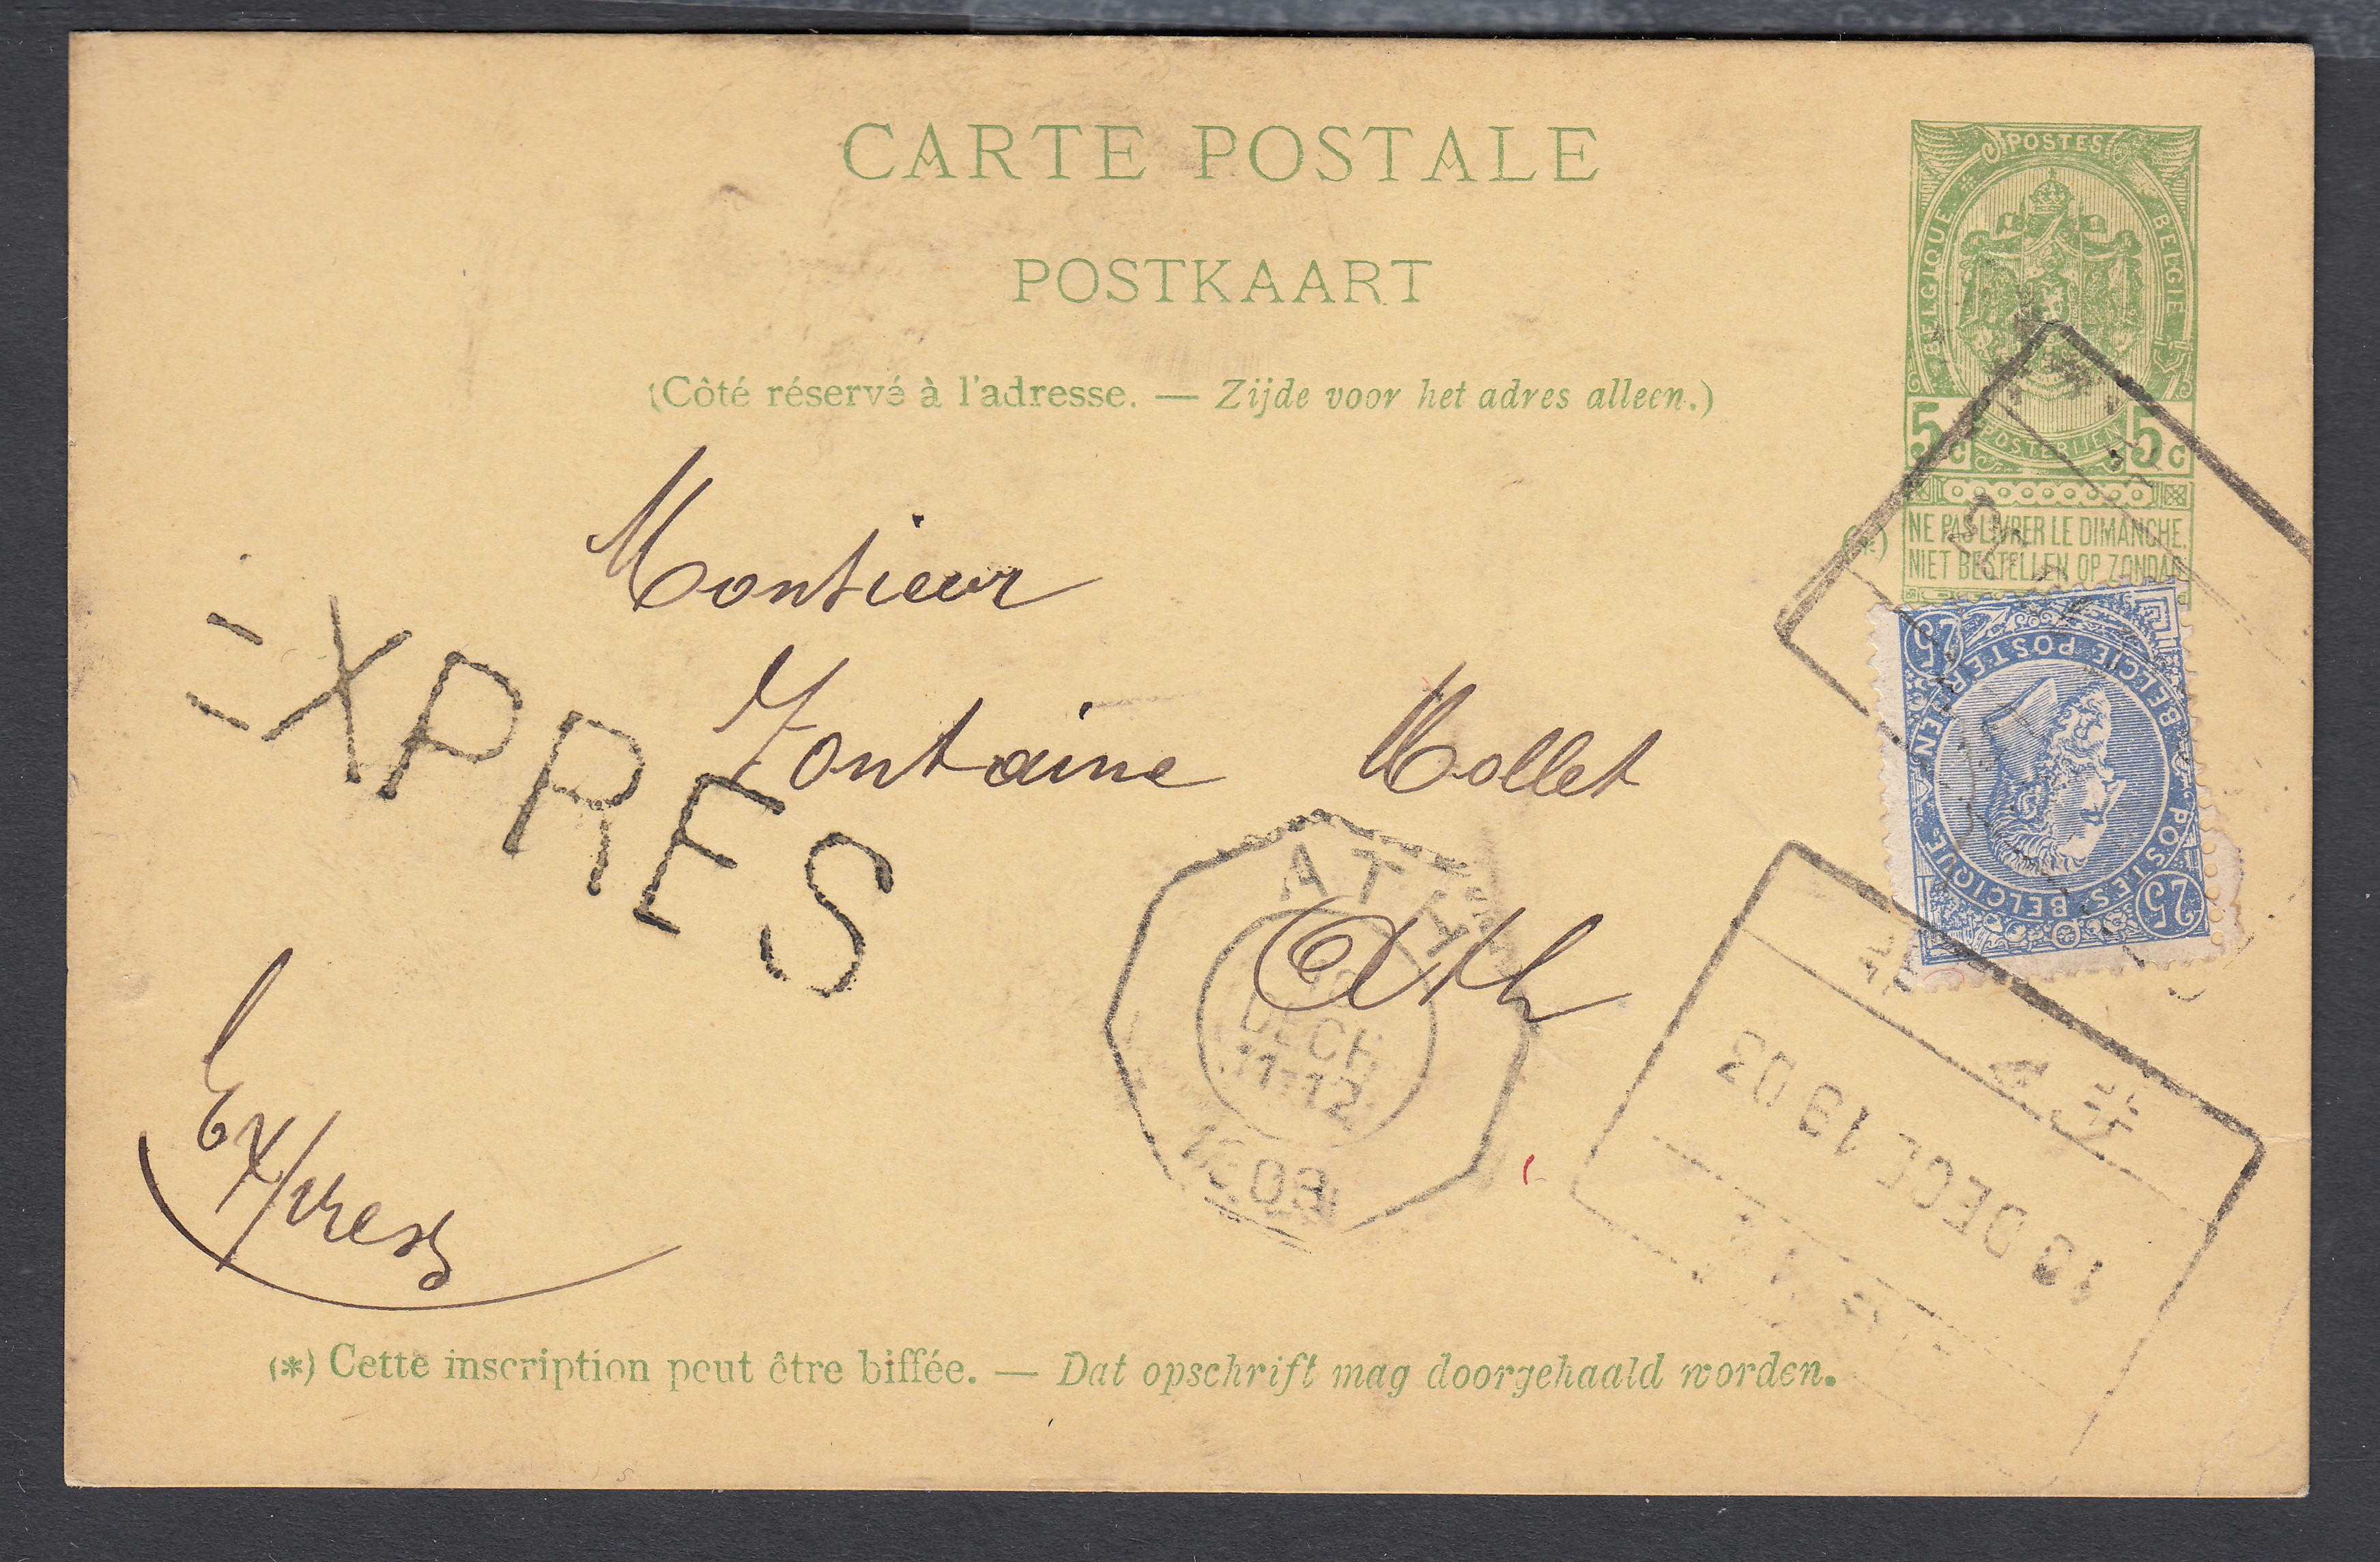 CARTE POSTALE
POSTKAART
(Côté réservé à l'adresse. — Zijde voor het adres alleen.)
POSTES
BELGIQUE
BELGIE
POSTERIJEN
5 c 5 c
(*)
NE PAS LIVRER LE DIMANCHE
NIET BESTELLEN OP ZONDAG
25 25
POSTES BELGIQUE
BELGIE POSTERIJEN
Monsieur
Fontaine Mollet
Ath
EXPRES
Express
ATH
DECE
11-12
1903
10 DECE 19 03
(*) Cette inscription peut être biffée. — Dat opschrift mag doorgehaald worden.